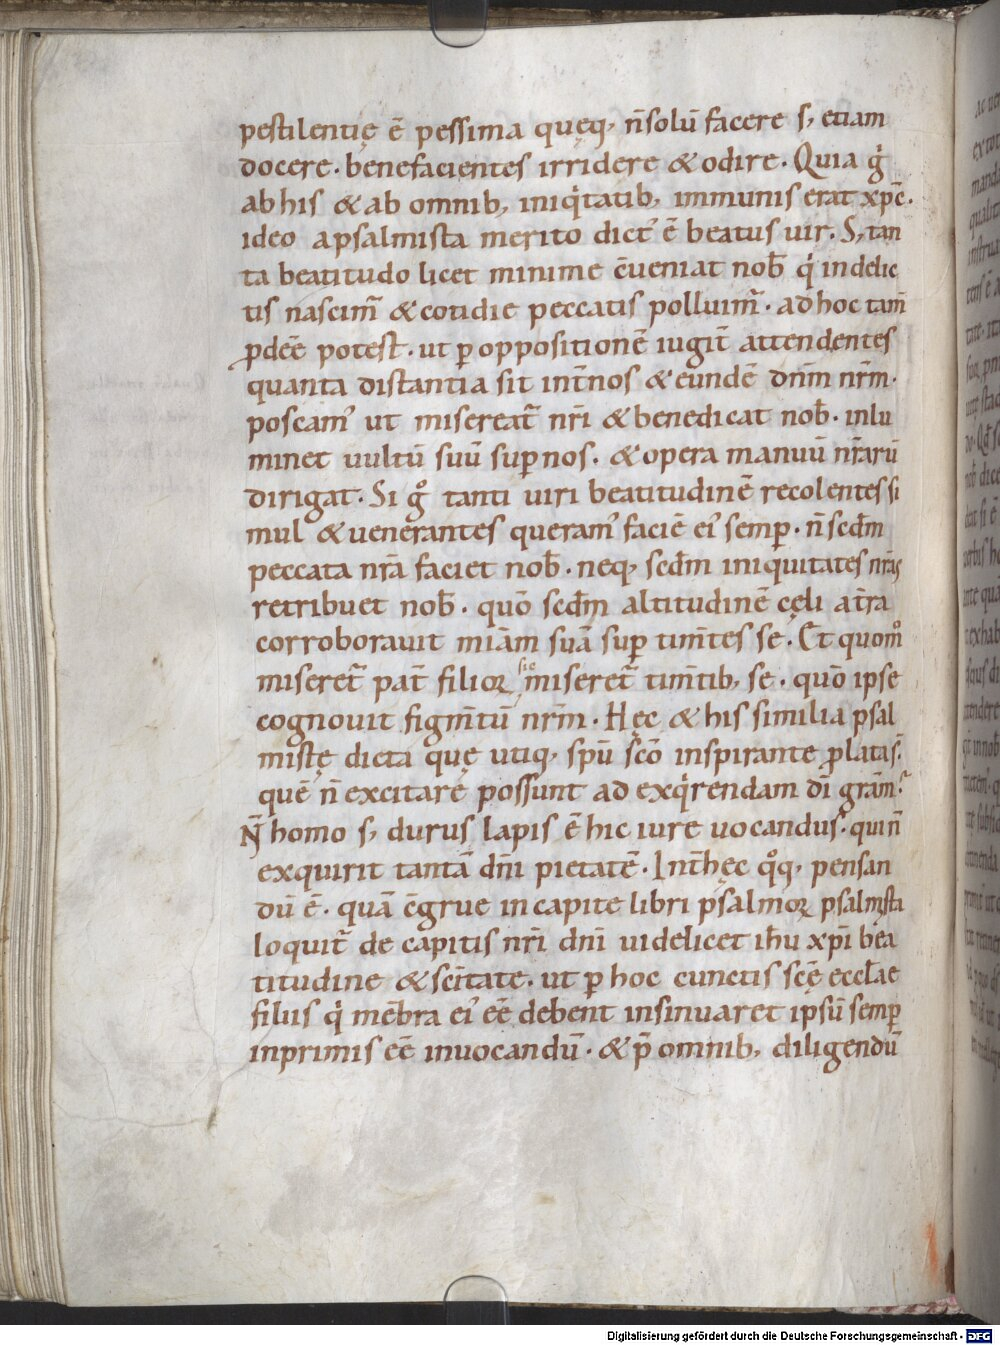 pestilentię ē pessima quęq; n̄ solū facere s; etiam
docere. benefacientes irridere & odire. Quia g̊
ab his & ab omnib; iniq̇tatib; immunis erat xp̄c.
ideo a psalmista merito dict᾽ ē beatus uir. S; tan
ta beatitudo licet minime c̄ueniat nob̄ q̇ in delic
tis nascim̄ & cotidie peccatis polluim̄. ad hoc tam̄
ꝓdēē potest. ut ꝑ oppositionē iugit̄ attendentes
quanta distantia sit int̄ nos & eundē dn̄m nr̄m.
poscam᾽ ut misereat̄ nr̄i & benedicat nob̄. inlu
minet uultū suū sup̄ nos. & opera manuū nr̄arū
dirigat. Si g̊ tanti uiri beatitudinē recolentes si
mul & uenerantes queram᾽ faciē ei᾽ semp̄. n̄ scdm̄
peccata nr̄a faciet nob̄. neq; scdm̄ iniquitates nr̄as
retribuet nob̄. quō scdm̄ altitudinē cęli a tr̄a
corroborauit miām suā sup̄ tim̄tes se. Et quom̊
miseret̄ pat̄ filioꝝ sic miseret̄ tim̄tib; se. quō ipse
cognouit figm̄tū nr̄m. Hęc & his similia psal
mistę dicta quę utiq; spū sc̄o inspirante ꝓlata s̄.
quē n̄ excitare possunt ad exq̇rendam dī grām.
N̄ homo s; durus lapis ē hic iure uocandus. qui n̄
exquirit tantā dn̄i pietatē. Int̄ hęc q̊q; pensan
dū ē. quā c̄grue in capite libri psalmoꝝ psalmista
loquit̄ de capitis nr̄i dn̄i uidelicet ih̄u xp̄i bea
titudine & sc̄itate. ut ꝑ hoc cunctis sc̄ę eccl̄ae
filiis q̇ mēbra ei᾽ ēē debent insinuaret ipsū semp̄
inprimis ēē inuocandū. & p̄ omnib; diligendū
Digitalisierung gefördert durch die Deutsche Forschungsgemeinschaft - DFG